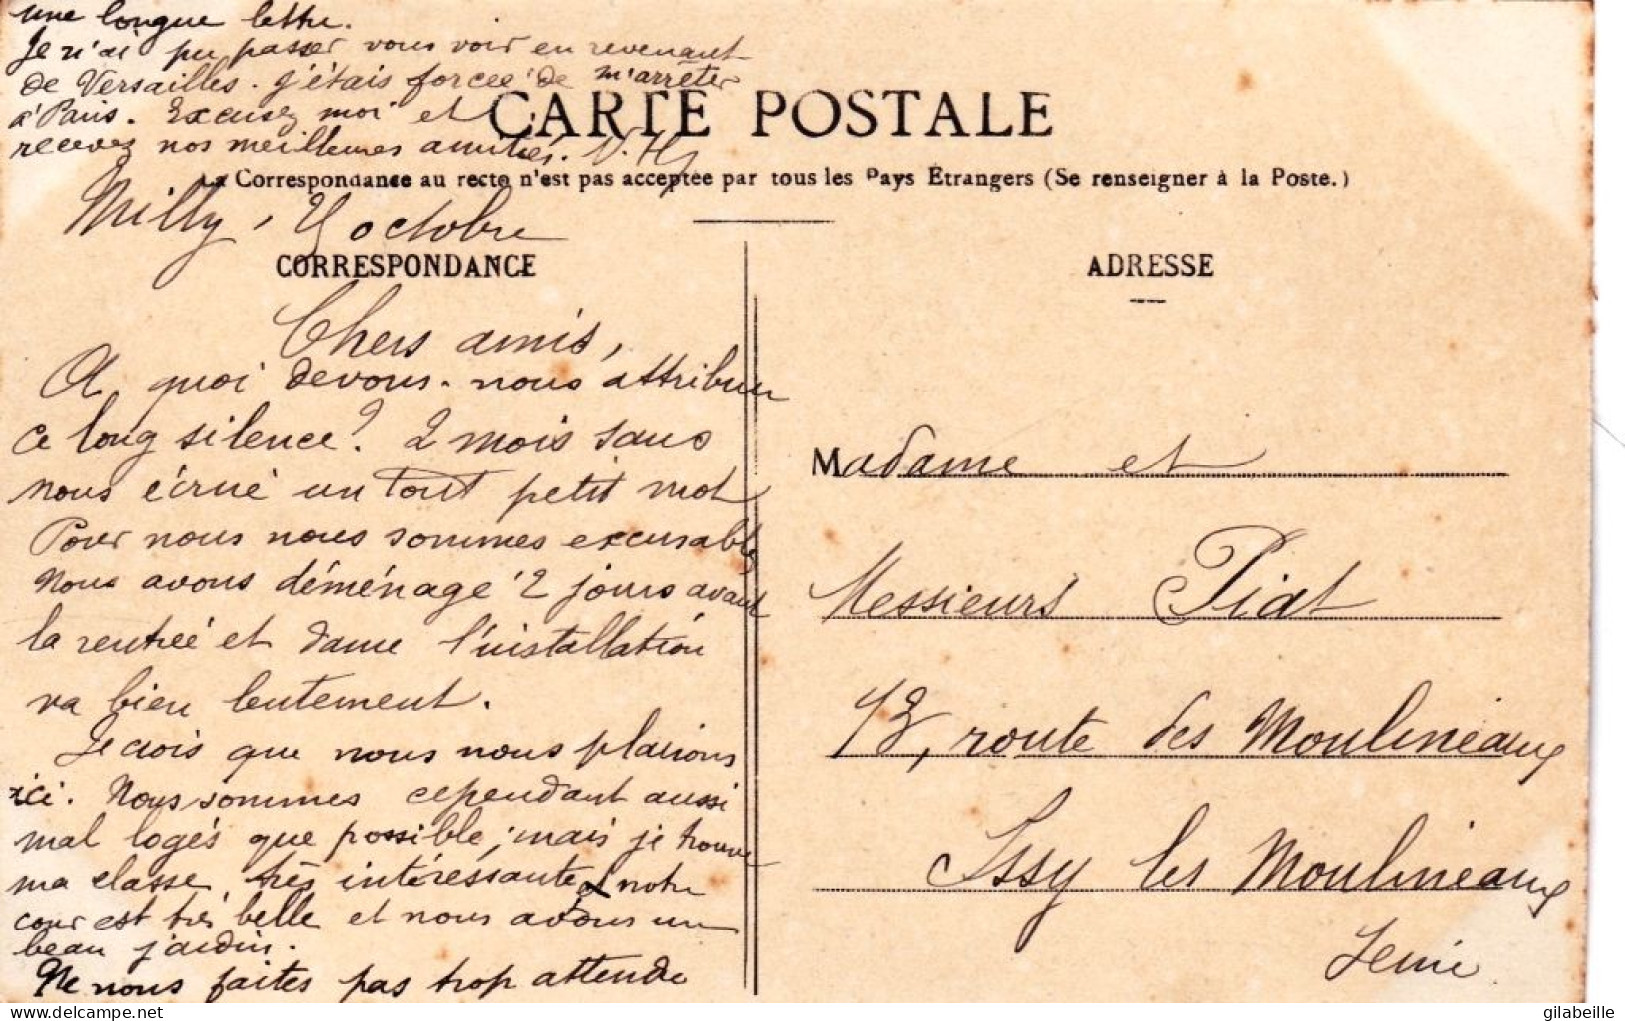 une longue lettre.
Je n'ai pu passer vous voir en revenant
de Versailles. J'étais forcée de m'arrêter
à Paris. Excusez moi et
recevez nos meilleures amitiés. V. H
CARTE POSTALE
La Correspondance au recto n'est pas acceptée par tous les Pays Étrangers (Se renseigner à la Poste.)
Milly, octobre
CORRESPONDANCE
Chers amis,
A quoi devons-nous attribuer
ce long silence? 2 mois sans
nous écrire un tout petit mot
Pour nous nous sommes excusables
Nous avons déménagé 2 jours avant
la rentrée et dame l'installation
va bien lentement.
Je crois que nous nous plairons
ici. Nous sommes cependant aussi
mal logés que possible; mais je trouve
ma classe très intéressante, notre
cour est très belle et nous avons un
beau jardin.
Ne nous faites pas trop attendre
ADRESSE
Madame et
Messieurs Piat
13, route des Moulineaux
Issy les Moulineaux
Seine
gilabeille